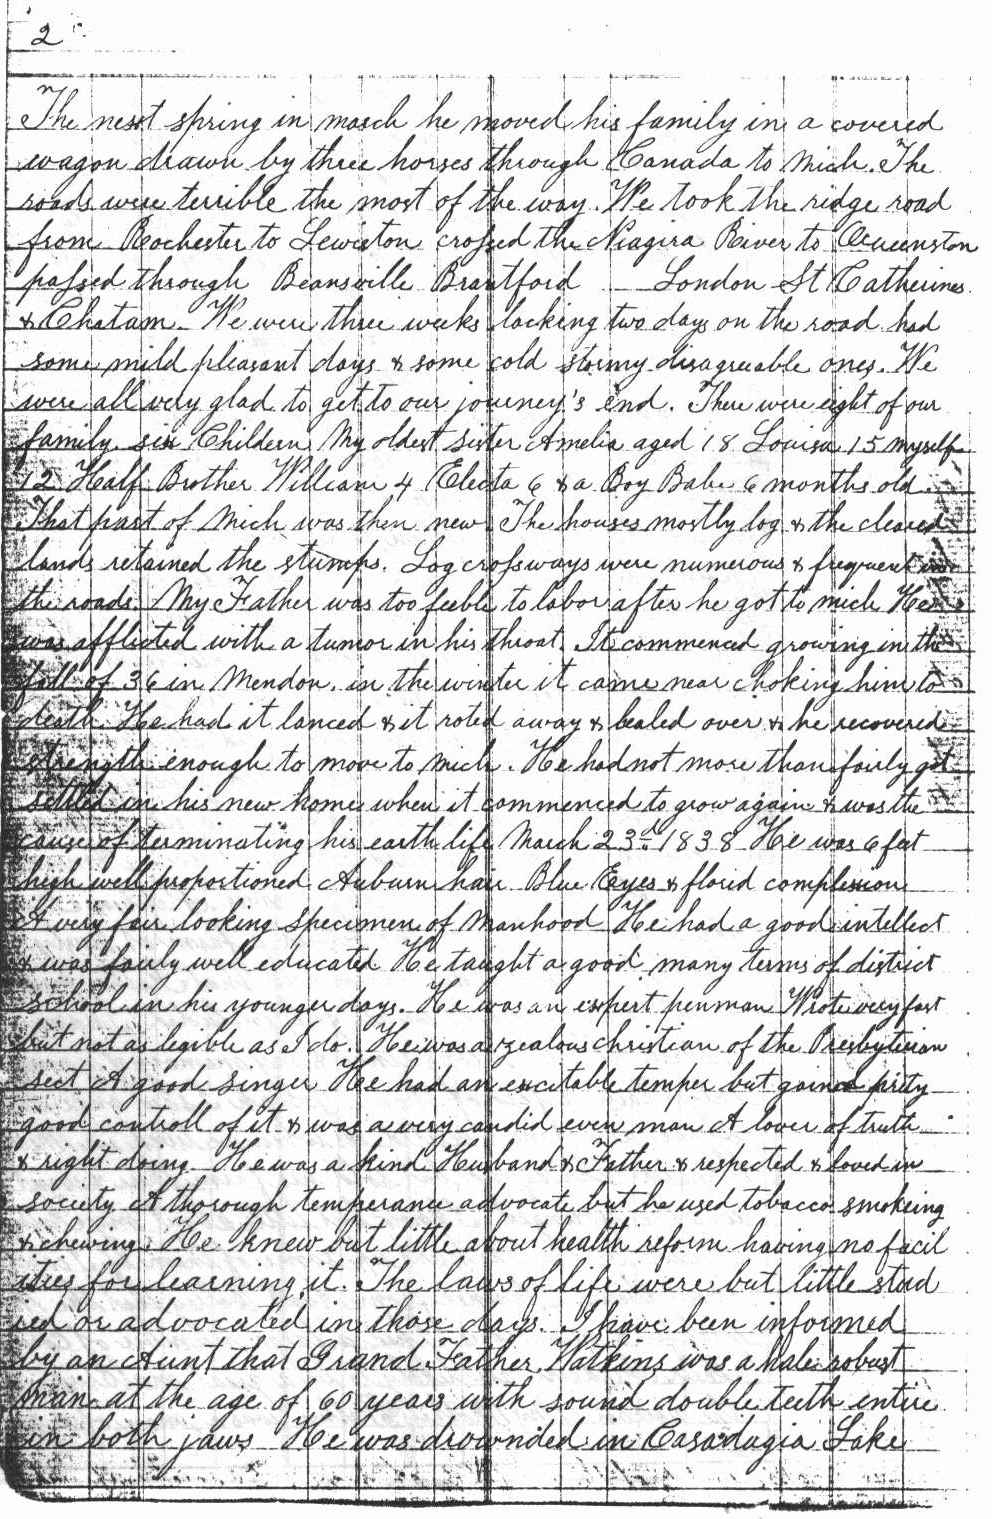 2
The next spring in march he moved his family in a covered
wagon drawn by three horses through Canada to Mich. The
roads were terrible the most of the way. We took the ridge road
from Rochester to Lewiston crossed the Niagira River to Queenston
passed through Beansville Brantford London St Catherines
& Chatam. We were three weeks lacking two days on the road had
some mild pleasant days & some cold stormy disagreeable ones. We
were all very glad to get to our journey's end. There were eight of our
family. six Childern My oldest sister Amelia aged 18 Louisa 15 myself
12 Half Brother William 4 Electa 6 & a Boy Babe 6 months old.
That part of Mich was then new. The houses mostly log & the cleared
lands retained the stumps. Log crossways were numerous & frequent in
the roads. My Father was too feeble to labor after he got to mich He
was afflicted with a tumor in his throat. It commenced growing in the
fall of 36 in Mendon. in the winter it came near choking him to
death He had it lanced & it roted away & healed over & he recovered
strength enough to move to Mich. He had not more than fairly got
settled in his new home when it commenced to grow again & was the
cause of terminating his earth life March 23d 1838 He was 6 feet
high well proportioned Auburn hair Blue Eyes & florid complexion
A very fair looking specimen of Manhood He had a good intellect
& was fairly well educated He taught a good many terms of district
school in his younger days. He was an expert penman Wrote very fast
but not as legible as I do. He was a zealous christian of the Presbyterian
sect A good singer He had an excitable temper but gained prity
good controll of it & was a very candid even man A lover of truth
& right doing. He was a kind Husband & Father & respected & loved in
society A thorough temperance advocate but he used tobacco smokeing
& chewing. He knew but little about health reform having no facil
ities for learning it. The laws of life were but little stud
ied or advocated in those days. I have been informed
by an Aunt that Grand Father Watkins was a hale robust
man at the age of 60 years with sound double teeth entire
in both jaws He was drownded in Casadagia Lake